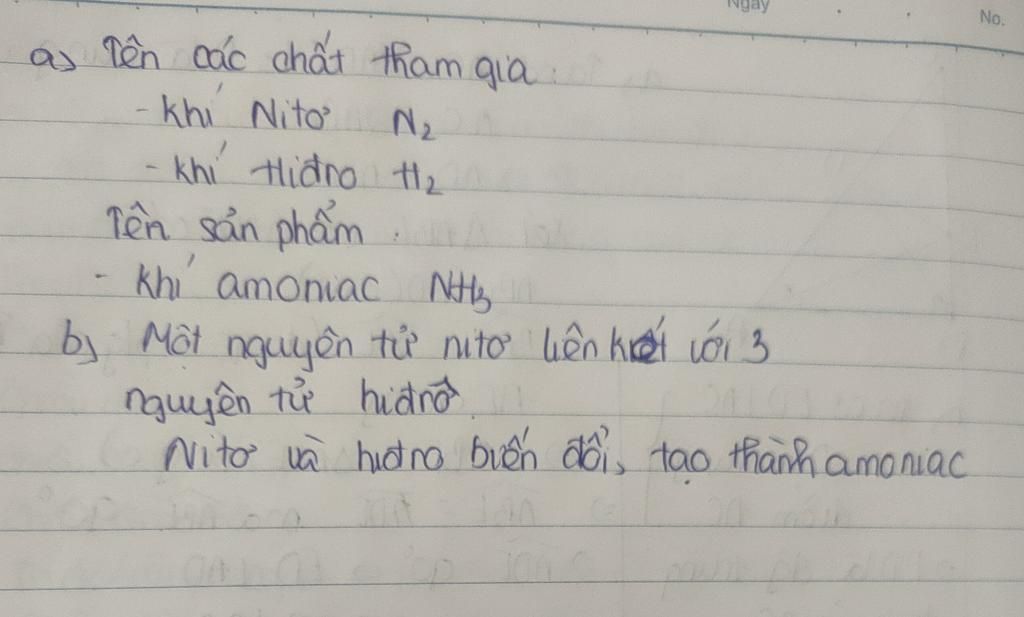 Ngày
No.
a) Tên các chất tham gia:
- Khí Nitơ N₂
- Khí Hiđro H₂
Tên sản phẩm.
- Khí amoniac NH₃
b) Một nguyên tử nitơ liên kết với 3
nguyên tử hiđrô.
Nitơ và hiđro biến đổi, tạo thành amoniac